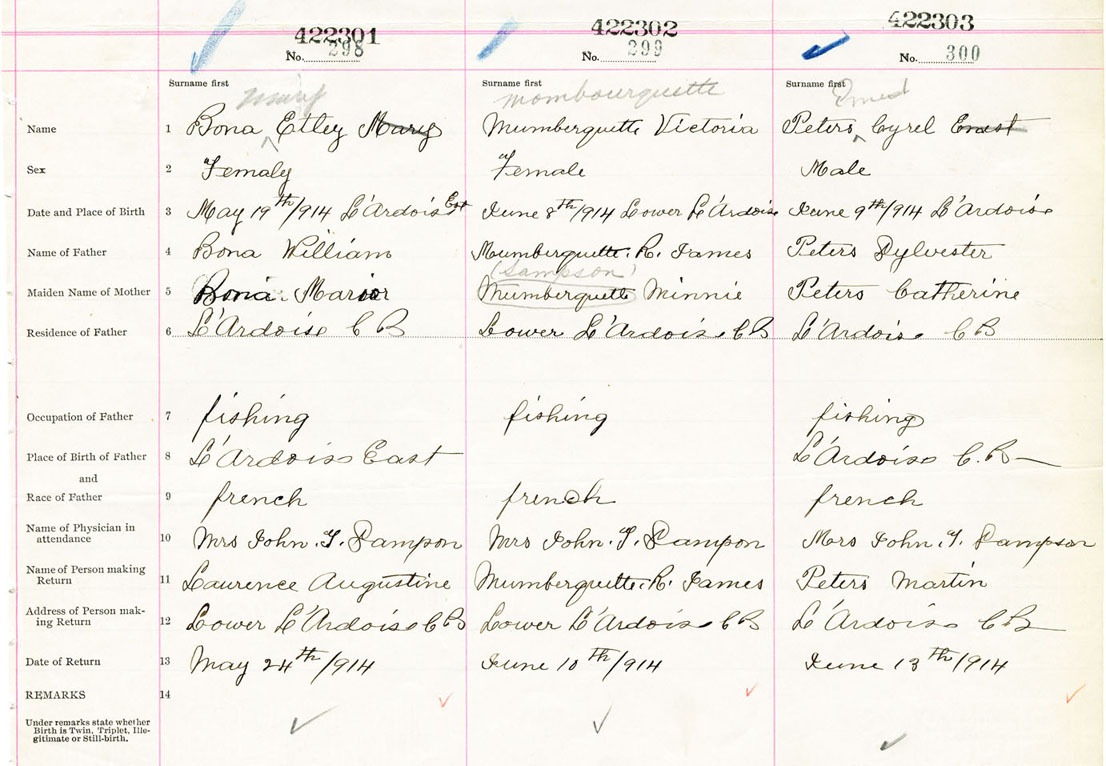 422301 422302 422303
No. 298 No. 299 No. 300
Surname first Surname first Surname first
Mary mombourquette Ernest
Name 1 Bona Etley Mary Mumberquette Victoria Peters Cyrel Ernest
Sex 2 Femaly Female Male
Date and Place of Birth 3 May 19th/914 L'Ardoise East June 8th/914 Lower L'Ardoise June 9th/914 L'Ardoise
Name of Father 4 Bona William Mumberquette. R. James Peters Sylvester
(Sampson)
Maiden Name of Mother 5 Bona Mumberquette Minnie Peters Catherine
Residence of Father 6 L'Ardoise C B Lower L'Ardoise C B L'Ardoise C B
Occupation of Father 7 fishing fishing fishing
Place of Birth of Father 8 L'Ardoise East L'Ardoise C. B
and
Race of Father 9 french french french
Name of Physician in
attendance 10 Mrs John. T. Sampson Mrs John. T. Sampson Mrs John. T. Sampson
Name of Person making
Return 11 Laurence Augustine Mumberquette. R. James Peters Martin
Address of Person mak-
ing Return 12 Lower L'Ardoise C B Lower L'Ardoise C B L'Ardoise C B
Date of Return 13 May 24th/914 June 10th/914 June 13th/914
REMARKS 14
Under remarks state whether
Birth is Twin, Triplet, Ille-
gitimate or Still-birth.